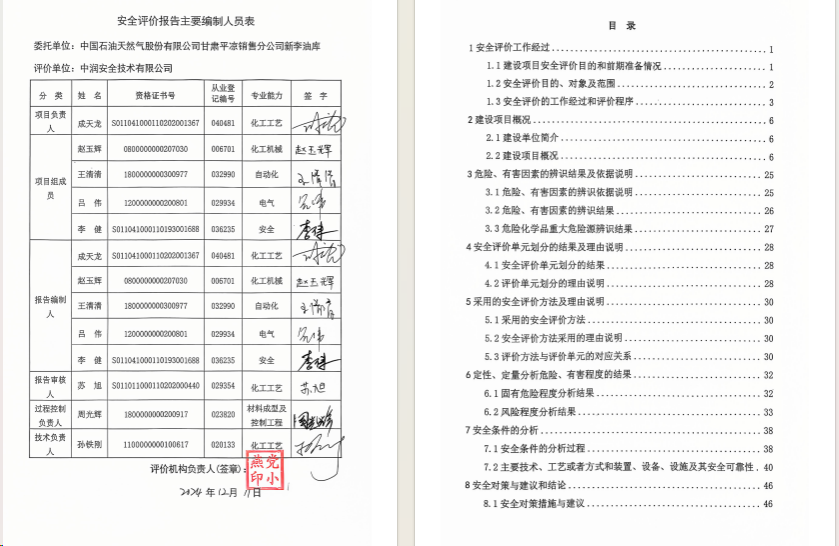 安全评价报告主要编制人员表
委托单位：中国石油天然气股份有限公司甘肃平凉销售分公司新李油库
评价单位：中润安全技术有限公司
分 类 姓 名 资格证书号 从业登记编号 专业能力 签 字
项目负责人 成天龙 S011041000110202001367 040481 化工工艺
项目组成员 赵玉辉 0800000000207030 006701 化工机械 赵玉辉
王清清 1800000000300977 032990 自动化 王清清
吕 伟 1200000000200801 029934 电气 吕伟
李 健 S011041000110193001688 036235 安全 李健
报告编制人 成天龙 S011041000110202001367 040481 化工工艺
赵玉辉 0800000000207030 006701 化工机械 赵玉辉
王清清 1800000000300977 032990 自动化 王清清
吕 伟 1200000000200801 029934 电气 吕伟
李 健 S011041000110193001688 036235 安全 李健
报告审核人 苏 旭 S011011000110202000440 029354 化工工艺 苏旭
过程控制负责人 周光辉 1800000000200917 023820 材料成型及控制工程
技术负责人 孙铁刚 1100000000100617 020133 化工工艺
评价机构负责人(签章)：
燕党印小
2024 年 12月 11日
目 录
1 安全评价工作经过 1
1.1 建设项目安全评价目的和前期准备情况 1
1.2 安全评价目的、对象及范围 2
1.3 安全评价的工作经过和评价程序 3
2 建设项目概况 6
2.1 建设单位简介 6
2.2 建设项目概况 6
3 危险、有害因素的辨识结果及依据说明 25
3.1 危险、有害因素的辨识依据说明 25
3.2 危险、有害因素的辨识结果 26
3.3 危险化学品重大危险源辨识结果 27
4 安全评价单元划分的结果及理由说明 28
4.1 安全评价单元划分的结果 28
4.2 评价单元划分的理由说明 28
5 采用的安全评价方法及理由说明 30
5.1 采用的安全评价方法 30
5.2 安全评价方法采用的理由说明 30
5.3 评价方法与评价单元的对应关系 30
6 定性、定量分析危险、有害程度的结果 32
6.1 固有危险程度分析结果 32
6.2 风险程度分析结果 33
7 安全条件的分析 38
7.1 安全条件的分析过程 38
7.2 主要技术、工艺或者方式和装置、设备、设施及其安全可靠性 40
8 安全对策与建议和结论 46
8.1 安全对策措施与建议 46